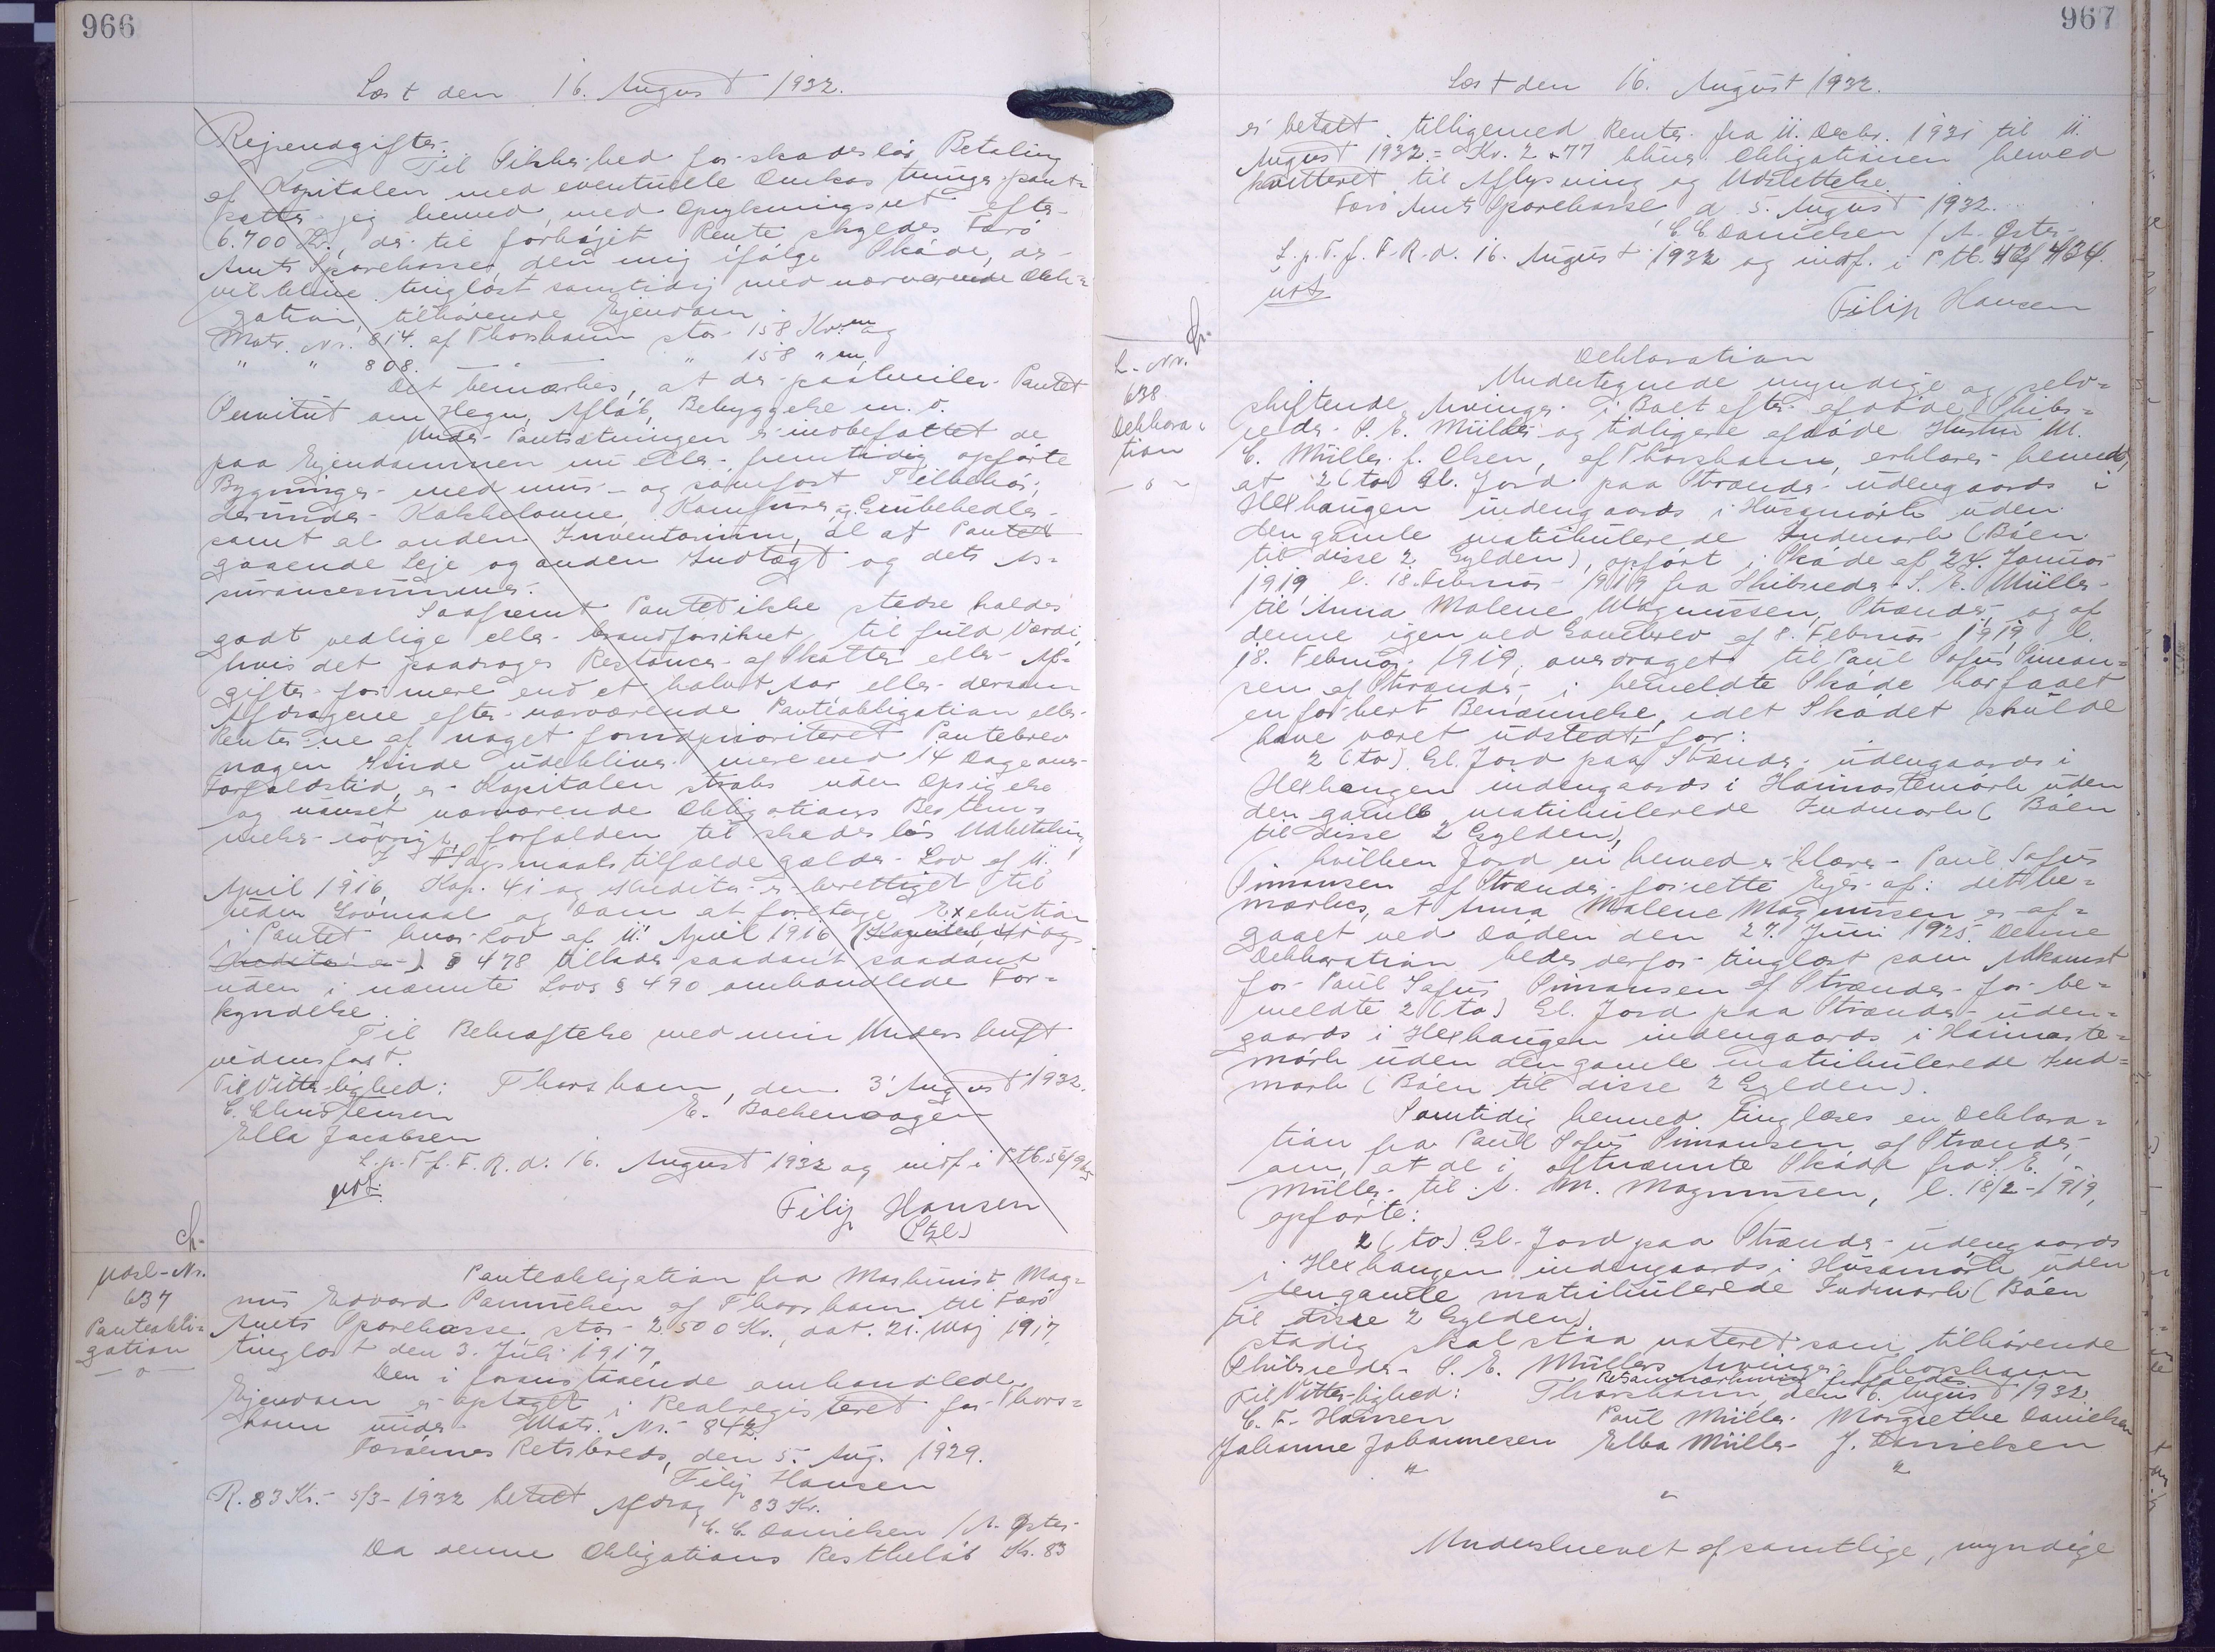 966
Læst den 16. August 1932.
Rejseudgifter.
Til Sikkerhed for skadesløs Betaling
af Kapitalen med eventuelle Omkostninger pant-
sætter jeg herved, med Oprykningsret efter
6.700 Kr., der til forhøjet Rente skyldes Færø
Amts Sparekasse, den mig ifølge Skøde, der
vil blive tinglæst samtidig med nærværende Obli-
gation, tilhørende Ejendom.
Matr. Nr. 814. af Thorshavn stor 158 Kv. m og
" " 808. — " 158 " m.
Det bemærkes, at der paahviler Pantet
Servitut om Hegn, Afløb, Bebyggelse m. v.
Under Pantsætningen er indbefattet de
paa Ejendommen nu eller fremtidig opførte
Bygninger med mur- og sømfast Tilbehør,
derunder Kakkelovne, Komfurer, og Gruekedler
samt al anden Inventarium, al af Pantet
gaaende Leje og anden Indtægt og dets As-
surancesummer.
Saafremt Pantet ikke stedse holdes
godt vedlige eller brandforsikret til fuld Værdi,
hvis det paadrages Restancer af Skatter eller Af-
gifter for mere end et halvt Aar, eller dersom
Afdragene efter nærværende Panteobligation eller
Renterne af noget foranprioriteret Pantebrev
nogen Sinde udebliver mere end 14 Dage over
Forfaldstid, er Kapitalen straks uden Opsigelse
og uanset nærværende Obligations Bestem-
melser iøvrigt, forfalden til skadesløs Udbetaling.
I Søgsmaalstilfælde gælder Lov af 11.
April 1916, Kap. 41 og Kreditor er berettiget til
uden Lovmaal og Dom at foretage Exekution
i Pantet hvor Lov af 11. April 1916 (Kapitel 41 og
Kreditor er) § 478 tillader saadant saadant
uden i nævnte Lovs § 490 omhandlede For-
kyndelse.
Til Bekræftelse med min Underskrift
vidnesfast.
Til Vitterlighed: Thorshavn, den 3' August 1932.
C. Christensen E. Bachenvagen
Ella Jacobsen
L. p. T. f. F. R. d. 16. August 1932 og indf. i Ptb.
Filip Hansen
Udsl-Nr.
637
Panteobli-
gation
—o—
Panteobligation fra Maskinist Mag-
nus Edvard Samuelsen af Thorshavn til Færø
Amts Sparekasse stor 2500 Kr., dat. 21. Maj 1917,
tinglæst den 3. Juli 1917.
Den i foranstaaende omhandlede
Ejendom er optaget i Realregisteret for Thors-
havn under Matr. Nr. 842.
Færøernes Retskreds, den 5. Aug. 1929.
Filip Hansen
R. 83 Kr. - 5/3 - 1932 betalt Afdrag 83 Kr.
C. C. Danielsen / A. Øster
Da denne Obligations Restbeløb Kr. 83
967
Læst den 16. August 1932.
er betalt tilligemed Renter fra 11. Decbr. 1931 til 11.
August 1932 = Kr. 2 77 bliver Obligationen herved
kvitteret til Aflysning og Udslettelse.
Færø Amts Sparekasse d. 5. August 1932.
C. C. Danielsen / A. Øster
L. p. T. f. F. R. d. 16. August 1932 og indf. i Ptb. 434.
Filip Hansen
L-Nr.
638
Deklara-
tion
—o—
Deklaration
Undertegnede myndige og selv-
skiftende Arvinger i Boet efter afdøde Skibs-
reder S. E. Müller og tidligere afdøde Hustru M.
C. Müller f. Olsen, af Thorshavn, erklærer herved,
at 2 (to) Gl. Jord paa Strænder udengaards i
Hexhaugen indengaards i Husamørk uden
den gamle matrikulerede Indmark (Bøen
til disse 2 Gylden), opført i Skøde af 24. Januar
1919 l. 18. Februar 1919 fra Skibsreder S. E. Müller
til Anna Malene Magnussen, Strænder, og af
denne igen ved Gavebrev af 8. Februar 1919 l.
18. Februar 1919, overdraget til Paul Sofus Siman-
sen af Strænder, i bemeldte Skøde har faaet
en forkert Benævnelse, idet Skødet skulde
have været udstedt for:
2 (to) Gl. Jord paa Strænder udengaards i
Hexhaugen indengaards i Heimastemørk uden
den gamle matrikulerede Indmark (Bøen
til disse 2 Gylden),
hvilken Jord vi herved erklærer Paul Sofus
Simonsen af Strænder for rette Ejer af: det be-
mærkes, at Anna Malene Magnussen er af-
gaaet ved Døden den 27. Juni 1925. Denne
Deklaration bedes derfor tinglæst som Adkomst
for Paul Sofus Simonsen af Strænder for be-
meldte 2 (to) Gl. Jord paa Strænder uden-
gaards i Hexhaugen indengaards i Heimaste-
mørk uden den gamle matrikulerede Ind-
mark (Bøen til disse 2 Gylden).
Samtidig hermed tinglæses en Deklara-
tion fra Paul Sofus Simonsen af Strænder,
om, at de i oftnævnte Skøde fra S. E.
Müller til A. M. Magnussen, l. 18/2-1919,
opførte:
2 (to) Gl. Jord paa Strænder udengaards
i Hexhaugen indengaards i Husamørk uden
den gamle matrikulerede Indmark (Bøen
til disse 2 Gylden)
stadig skal staa noteret som tilhørende
Skibsreder S. E. Müllers Arvinger, Thorshavn
Til Vitterlighed: Thorshavn, den 6. August 1932.
C. F. Hansen Paul Müller Margrethe Danielsen
Johanne Johannesen Elba Müller J. Danielsen
" "
"
Underskrevet af samtlige, myndige